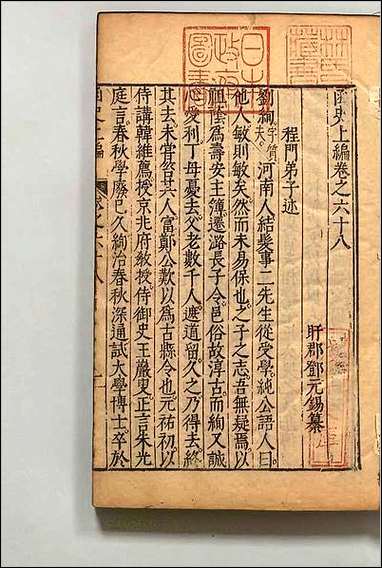 函史上編卷之六十八
盱郡鄧元錫纂
程門弟子述
劉絢字質夫河南人結髮事二先生從受學純公語人曰
他人敏則敏矣然而未易保也之子之志吾無疑焉以
祖蔭為壽安主簿遷潞長子令邑俗故淳古而絢又誠
愛利丁母憂去父老數千人遮道留久之乃得去終
其去未嘗笞其人富鄭公歎以為古縣令也元祐初以
侍講韓維薦授京兆府敎授侍御史王巖叟正言朱光
庭言春秋學廢已久絢治春秋深通試大學博士卒於
日本
政府
圖書